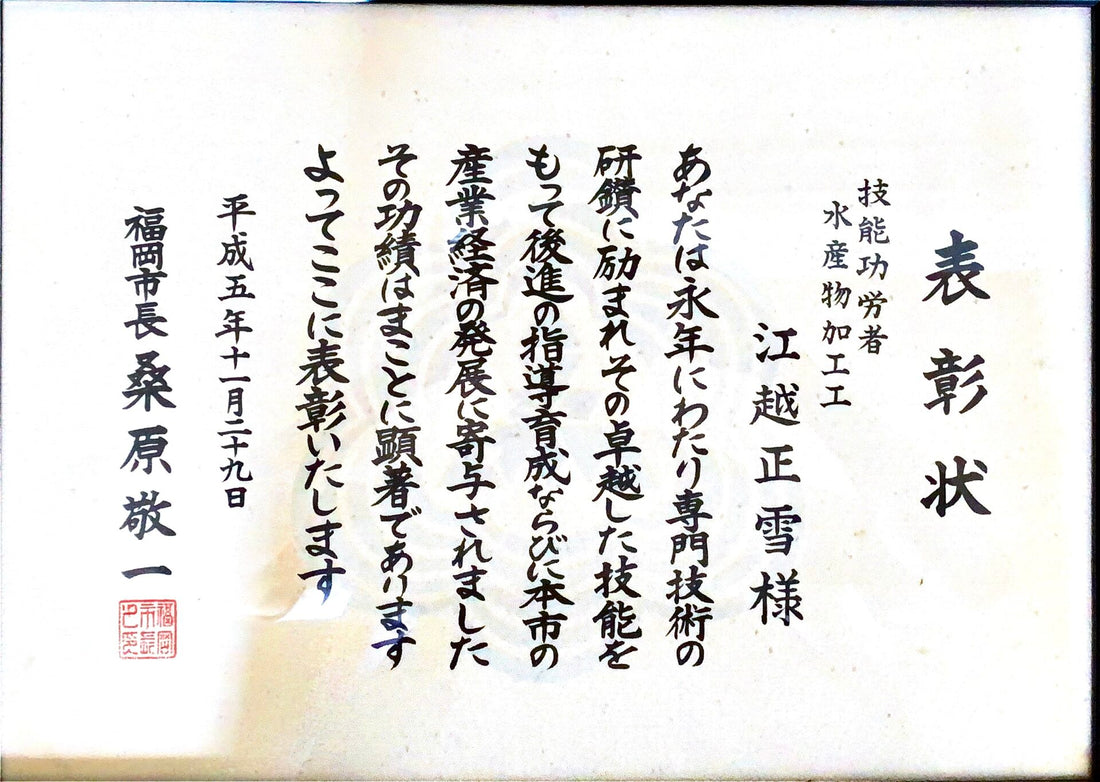 表彰状
技能功労者
水産物加工工
江越正雪様
あなたは永年にわたり専門技術の
研鑽に励まれその卓越した技能を
もって後進の指導育成ならびに本市の
産業経済の発展に寄与されました
その功績はまことに顕著であります
よってここに表彰いたします
平成五年十一月二十九日
福岡市長 桑原敬一
福岡
市長
之印